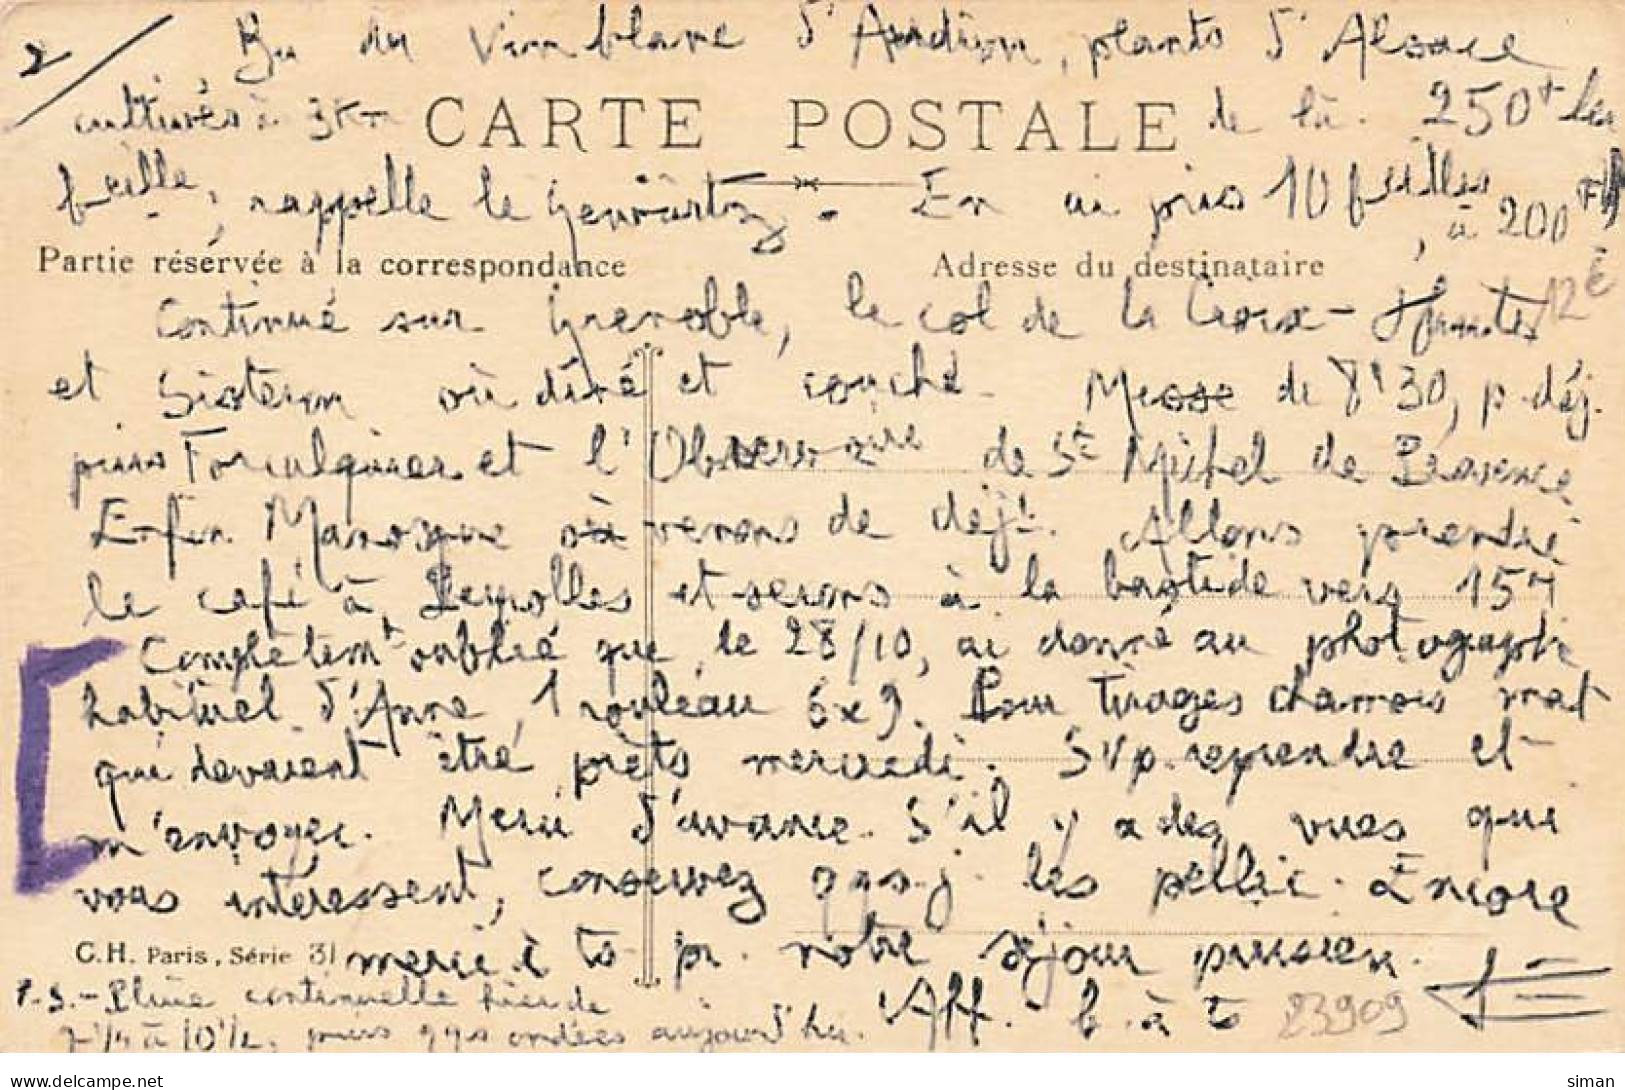 2 Bu du vin blanc d'Aurdion, plants d'Alsace
cultivés à 3 km de là. 250F la
bouteille, rappelle le Gewürtz. En ai pris 10 bouteilles
à 200F
CARTE POSTALE
Partie réservée à la correspondance Adresse du destinataire
12€
Continué sur Grenoble, le col de la Croix-Haute
et Sisteron où dîné et couché. Messe de 8h30, p. déj.
puis Forcalquier et l'Observatoire de St Michel de Provence
Enfin Manosque où venons de déjr. Allons prendre
le café à Peyrolles et serons à la bastide vers 15h
Complètemt oublié que, le 28/10, ai donné au photographe
habituel d'Anne, 1 rouleau 6x9. Pour tirages chamois mat
qui devaient être prêts mercredi. Svp. reprendre et
m'envoyer. Merci d'avance. S'il y a des vues qui
vous intéressent, conservez qqs j. les pellic. Encore
C.H. Paris, Série 31 merci à ts pr. notre séjour parisien.
P.S. - Pluie continuelle hier de Aff. b. à t 23909
7h1/4 à 10h1/2, puis qqs ondées aujourd'hui.
delcampe.net siman